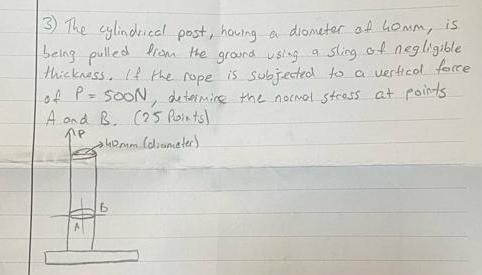 3) The cylindrical post, having a diameter of 40mm, is
being pulled from the ground using a sling of negligible
thickness. If the rope is subjected to a vertical force
of P = 500N, determine the normal stress at points
A and B. (25 Points)
P
40mm (diameter)
B
A